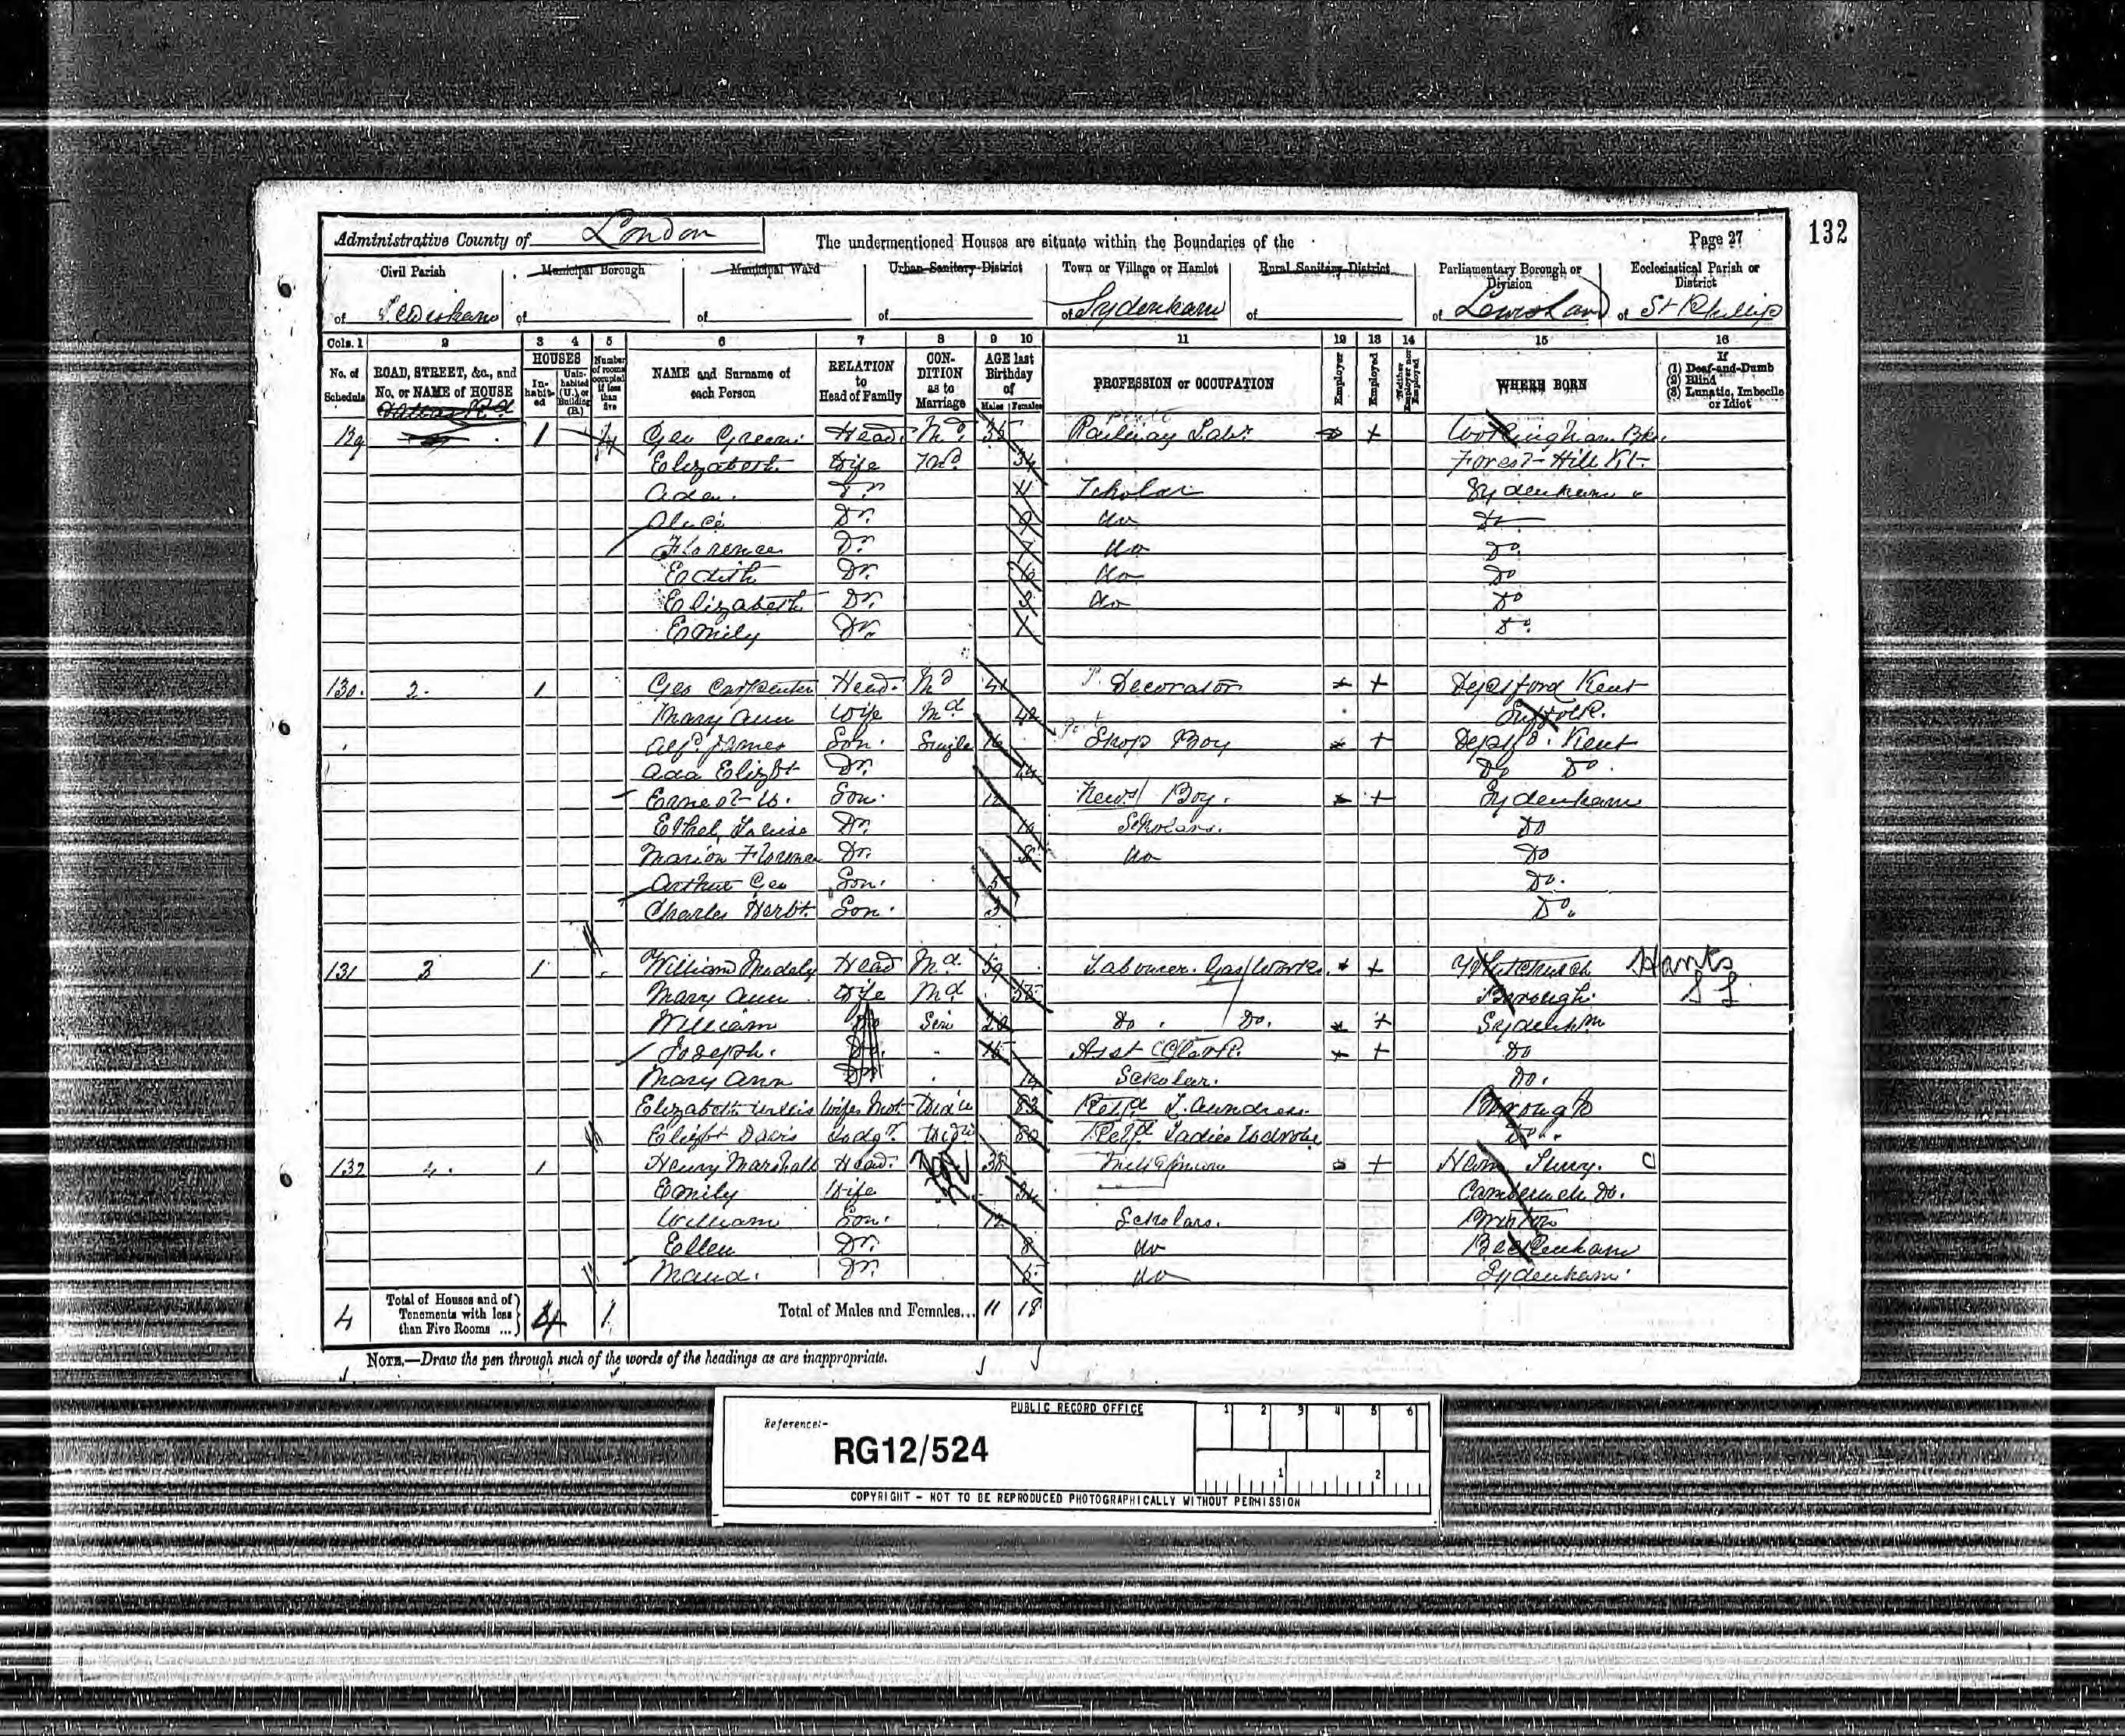 Administrative County of London The undermentioned Houses are situate within the Boundaries of the Page 27 132
Civil Parish Municipal Borough Municipal Ward Urban Sanitary District Town or Village or Hamlet Rural Sanitary District Parliamentary Borough or Division Ecclesiastical Parish or District
of Lewisham of of of of Sydenham of of Lewisham of St Philip
Cols. 1 2 3 4 5 6 7 8 9 10 11 12 13 14 15 16
No. of Schedule ROAD, STREET, &c., and No. or NAME of HOUSE HOUSES Inhabited Uninhabited (U.) or Building (B.) Number of rooms occupied if less than five NAME and Surname of each Person RELATION to Head of Family CONDITION as to Marriage AGE last Birthday of Males Females PROFESSION or OCCUPATION Employer Employed Neither Employer nor Employed WHERE BORN If (1) Deaf-and-Dumb (2) Blind (3) Lunatic, Imbecile or Idiot
129 1 4 Geo Green Head Md 35 Railway Labr + Wokingham Bks
Elizabeth Wife Md 34 Forest Hill Kt
Ada Dr. 11 Scholar Sydenham
Alice Dr. 9 do Do
Florence Dr. 7 do Do
Edith Dr. 6 do Do
Elizabeth Dr. 3 do Do
Emily Dr. 1 Do
130. 2. 1 Geo Carpenter Head. Md 41 Decorator + Deptford Kent
Mary Ann Wife Md 42 Suffolk.
Alf. James Son. Single 16 Shop Boy + Deptfd. Kent
Ada Elizbt Dr. 14 Do Do.
Ernest W. Son. 12 News Boy. + Sydenham
Ethel Louisa Dr. 10 Scholars. Do
Marion Florence Dr. 8 do Do
Arthur Geo Son. 5 Do.
Charles Herbt. Son. 3 Do.
131 3 1 William Madely Head Md. 59 Labourer. Gas Works + Whitchurch Hants
Mary Ann Wife Md 58 Borough. S L
William Sin 20 Do. Do. + Sydenhm
Joseph. 16 Asst Clerk. + Do
Mary Ann 14 Scholar. Do.
Elizabeth Willis Wifes Mot Widw 83 Retd Laundress Borough
Elizbt Davis Lodgr. Widw 80 Retd Ladies Wdrobe Do.
132 4. 1 Henry Marshall Head. 38 + Ham Surry.
Emily Wife 34 Camberwell Do.
William Son. 12 Scholars.
Ellen Dr. 8 do Beckenham
Maud. Dr. 5 do Sydenham
4 Total of Houses and of Tenements with less than Five Rooms ... 4 1 Total of Males and Females... 11 18
NOTE.—Draw the pen through such of the words of the headings as are inappropriate.
PUBLIC RECORD OFFICE 1 2 3 4 5 6
Reference:-
RG12/524
1 2
COPYRIGHT - NOT TO BE REPRODUCED PHOTOGRAPHICALLY WITHOUT PERMISSION